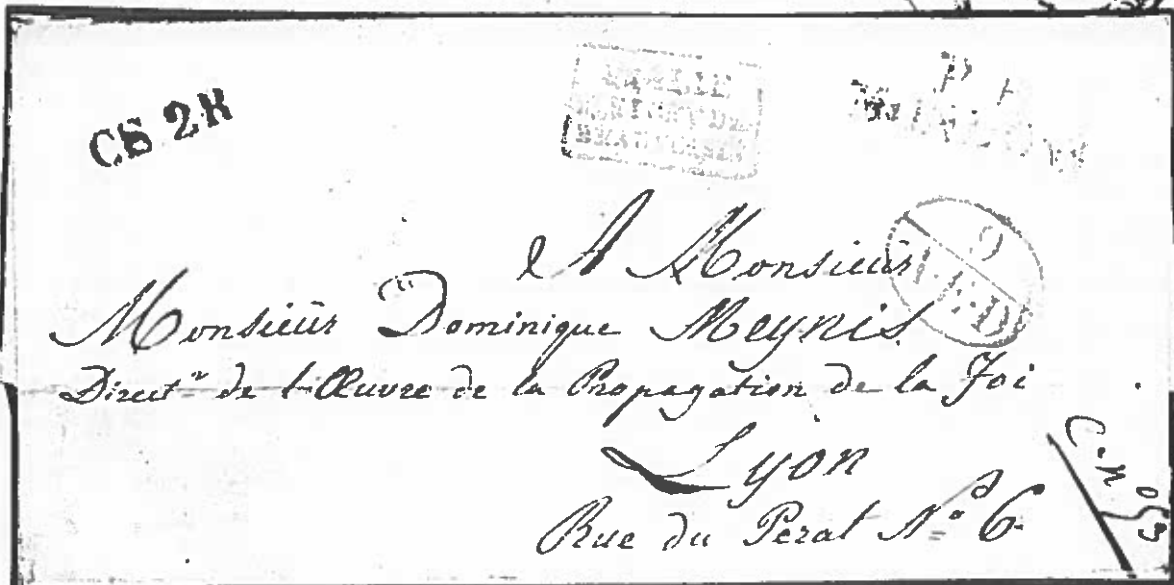 CS 2R
A Monsieur
Monsieur Dominique Meynis
Direct.r de l'Œuvre de la Propagation de la Foi
Lyon
Rue du Perat N.º 6
C. nº